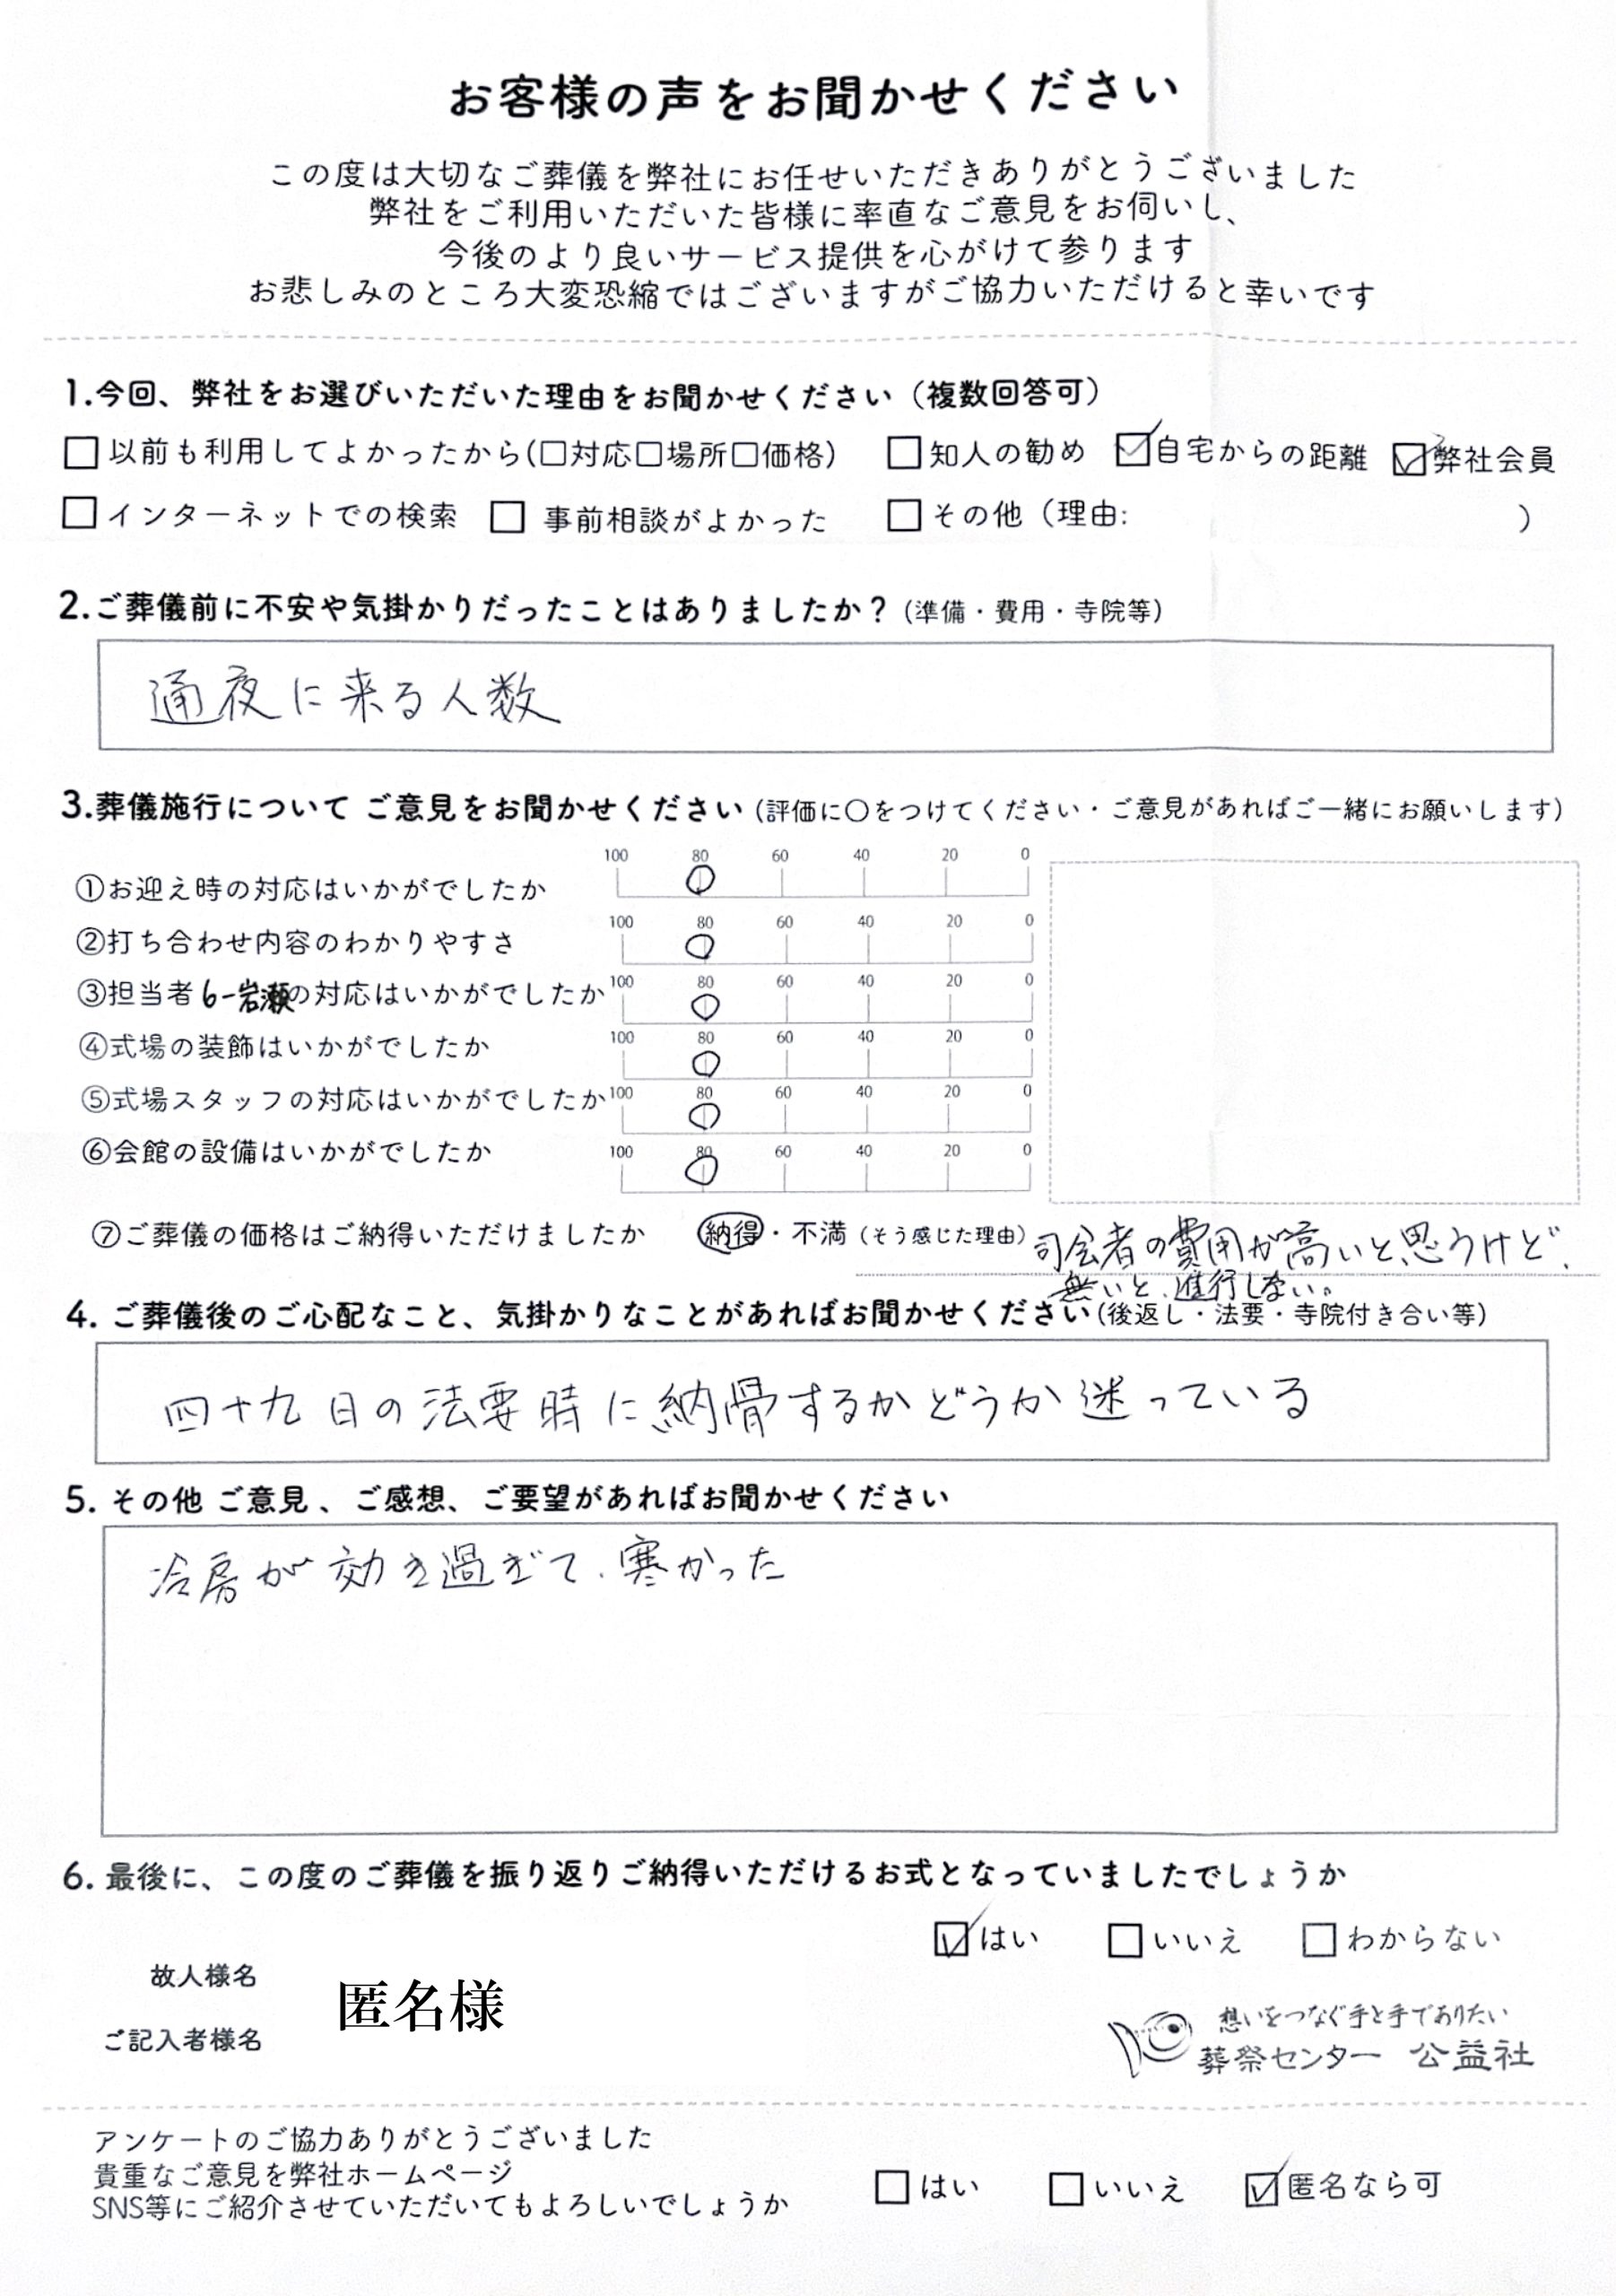 お客様の声をお聞かせください
この度は大切なご葬儀を弊社にお任せいただきありがとうございました
弊社をご利用いただいた皆様に率直なご意見をお伺いし、
今後のより良いサービス提供を心がけて参ります
お悲しみのところ大変恐縮ではございますがご協力いただけると幸いです
1.今回、弊社をお選びいただいた理由をお聞かせください（複数回答可）
□以前も利用してよかったから(□対応□場所□価格) □知人の勧め ☑自宅からの距離 ☑弊社会員
□インターネットでの検索 □事前相談がよかった □その他（理由: ）
2.ご葬儀前に不安や気掛かりだったことはありましたか？(準備・費用・寺院等)
通夜に来る人数
3.葬儀施行について ご意見をお聞かせください(評価に○をつけてください・ご意見があればご一緒にお願いします)
①お迎え時の対応はいかがでしたか 100 80 60 40 20 0
②打ち合わせ内容のわかりやすさ 100 80 60 40 20 0
③担当者 6-岩瀬の対応はいかがでしたか 100 80 60 40 20 0
④式場の装飾はいかがでしたか 100 80 60 40 20 0
⑤式場スタッフの対応はいかがでしたか 100 80 60 40 20 0
⑥会館の設備はいかがでしたか 100 80 60 40 20 0
⑦ご葬儀の価格はご納得いただけましたか 納得・不満（そう感じた理由）司会者の費用が高いと思うけど、
無いと、進行しない。
4. ご葬儀後のご心配なこと、気掛かりなことがあればお聞かせください(後返し・法要・寺院付き合い等)
四十九日の法要時に納骨するかどうか迷っている
5. その他 ご意見、ご感想、ご要望があればお聞かせください
冷房が効き過ぎて、寒かった
6. 最後に、この度のご葬儀を振り返りご納得いただけるお式となっていましたでしょうか
☑はい □いいえ □わからない
故人様名
匿名様
ご記入者様名
想いをつなぐ手と手でありたい
葬祭センター 公益社
アンケートのご協力ありがとうございました
貴重なご意見を弊社ホームページ
SNS等にご紹介させていただいてもよろしいでしょうか □はい □いいえ ☑匿名なら可